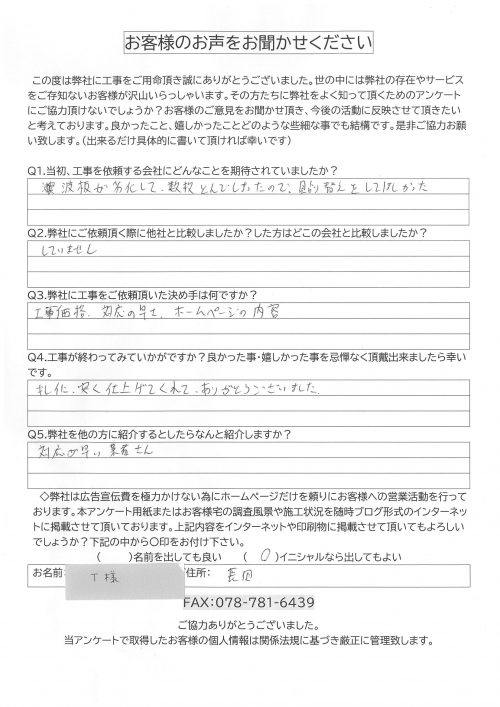 お客様のお声をお聞かせください
この度は弊社に工事をご用命頂き誠にありがとうございました。世の中には弊社の存在やサービス
をご存知ないお客様が沢山いらっしゃいます。その方たちに弊社をよく知って頂くためのアンケート
にご協力頂けないでしょうか？お客様のご意見をお聞かせ頂き、今後の活動に反映させて頂きたい
と考えております。良かったこと、嬉しかったことどのような些細な事でも結構です。是非ご協力お願
い致します。（出来るだけ具体的に書いて頂ければ幸いです）
Q1.当初、工事を依頼する会社にどんなことを期待されていましたか？
波板が劣化して、数枚とんでしまったので、貼り替えをしてほしかった
Q2.弊社にご依頼頂く際に他社と比較しましたか？した方はどこの会社と比較しましたか？
していません
Q3.弊社に工事をご依頼頂いた決め手は何ですか？
工事価格、対応の早さ、ホームページの内容
Q4.工事が終わってみていかがですか？良かった事・嬉しかった事を忌憚なく頂戴出来ましたら幸い
です。
キレイに、安く仕上げてくれて、ありがとうございました。
Q5.弊社を他の方に紹介するとしたらなんと紹介しますか？
対応の早い業者さん
◇弊社は広告宣伝費を極力かけない為にホームページだけを頼りにお客様への営業活動を行って
おります。本アンケート用紙またはお客様宅の調査風景や施工状況を随時ブログ形式のインターネッ
トに掲載させて頂いております。上記内容をインターネットや印刷物に掲載させて頂いてもよろしい
でしょうか？下記の中から〇印をお付け下さい。
（　　）名前を出しても良い　（ 〇 ）イニシャルなら出してもよい
お名前: T様 住所: 長田
FAX:078-781-6439
ご協力ありがとうございました。
当アンケートで取得したお客様の個人情報は関係法規に基づき厳正に管理致します。